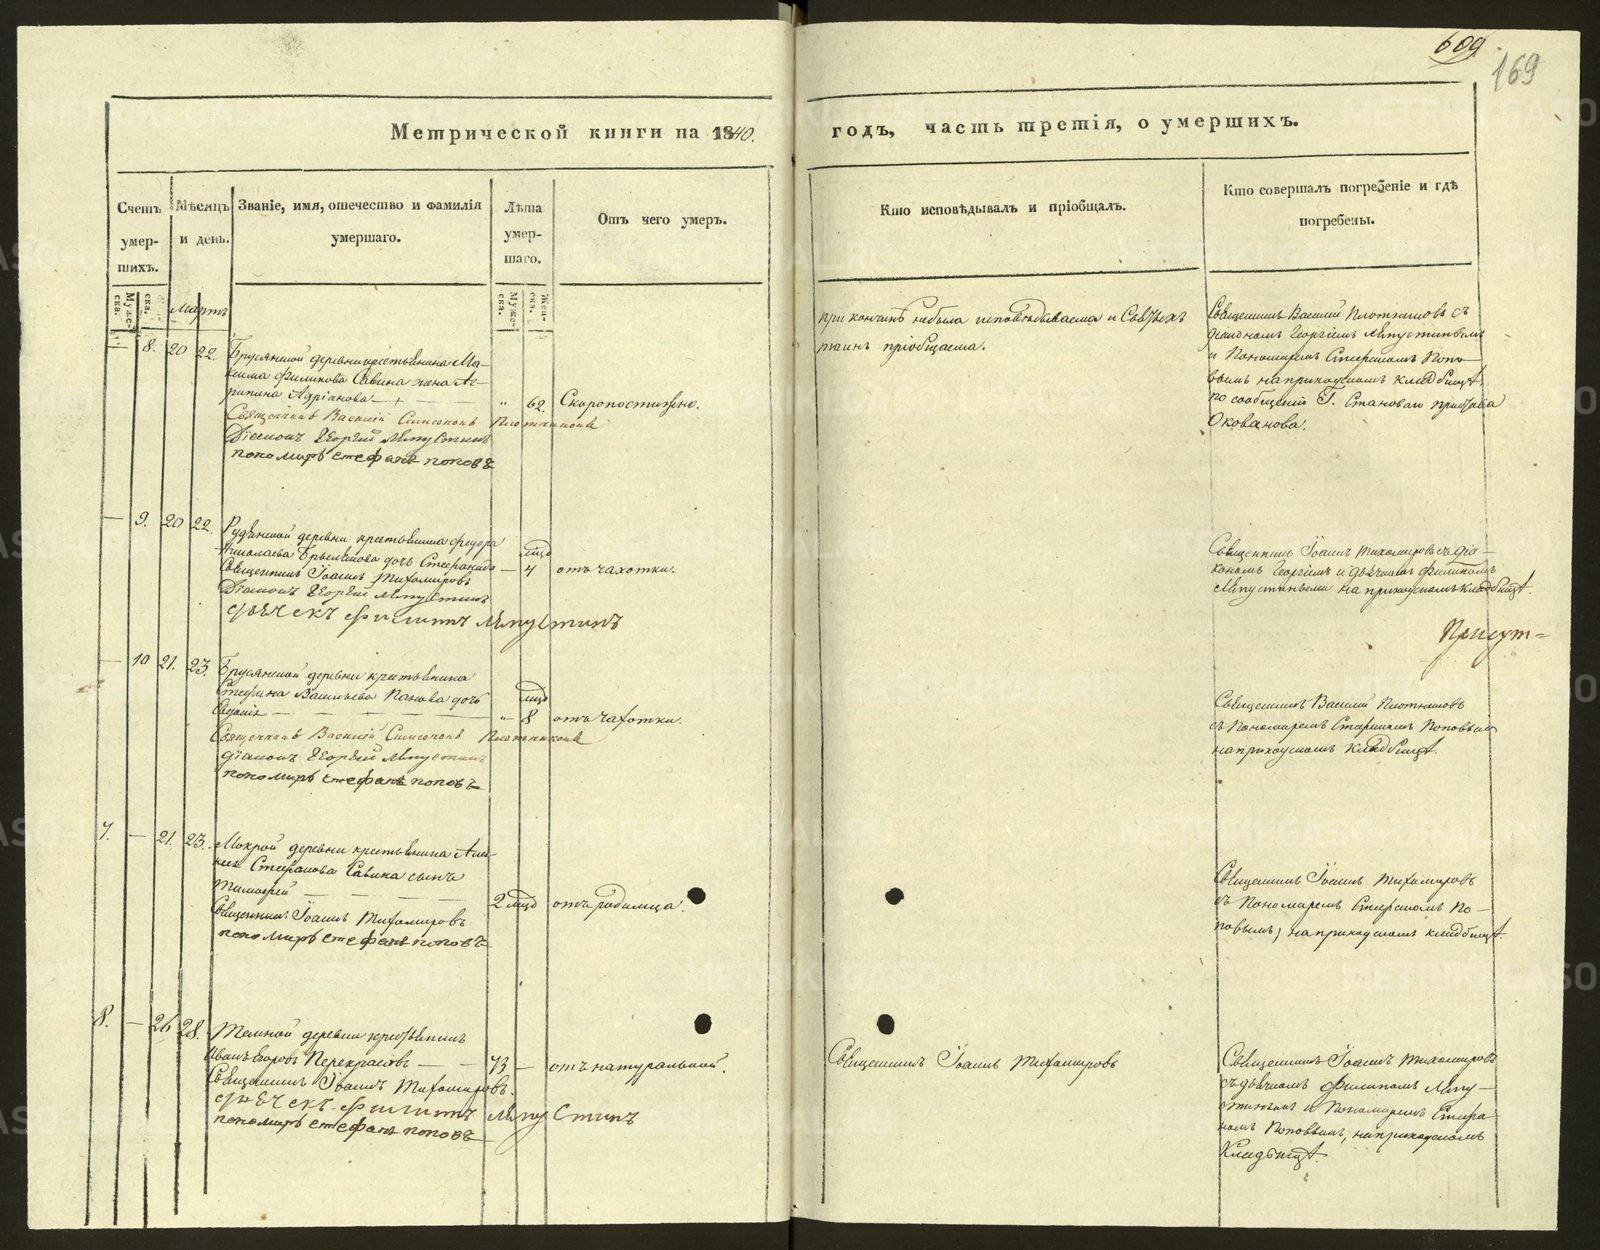 609
169
Метрической книги на 1840.
годъ, часть третія, о умершихъ.
Счетъ умер-шихъ.
Мѣсяцъ и день.
Званіе, имя, отечество и фамилія
умершаго.
Лѣта умер-шаго.
Отъ чего умеръ.
Кто исповѣдывалъ и пріобщалъ.
Кто совершалъ погребеніе и гдѣ
погребены.
Муже-ска.
ска.
Муже-ска.
Жен-ска.
Мартъ
8. 20 22. Брусянской деревни крестьянина Ма-
ксима Филипова Савина жена Аг-
рипина Адріанова
" 62. Скоропостижно.
Священникъ Василій Симеоновъ Плотниковъ
Діаконъ Георгій Ляпустинъ
пономарь стефанъ поповъ
при кончинѣ небыла исповѣдываема и Святыхъ
таинъ пріобщаема.
Священникъ Василій Плотниковъ съ
діакономъ Георгіемъ Ляпустинымъ
и Пономаремъ Стефаномъ Попо-
вымъ на приходскомъ кладбищѣ
по сообщенію Г. Становаго пристава
— 9. 20 22. Рудянской деревни крестьянина Федора
Николаева дочь Стефанида
мцд
— 4 отъ чахотки.
Священникъ Іоаннъ Тихомировъ
Діаконъ Георгій Ляпустинъ
дьячекъ филиппъ Ляпустинъ
Священникъ Іоаннъ Тихомировъ съ діа-
кономъ Георгіемъ и дьячкомъ Филипомъ
Ляпустиными на приходскомъ кладбищѣ.
— 10 21. 23. Брусянской деревни крестьянина
Стефана Васильева Панова дочь
Евдокія
мцд
" 8 отъ чахотки.
Священникъ Василій Симеоновъ Плотниковъ
діаконъ Георгій Ляпустинъ
пономарь стефанъ поповъ
Священникъ Василій Плотниковъ
съ Пономаремъ Стефаномъ Поповымъ
на приходскомъ кладбищѣ.
7. — 21. 23. Мокрой деревни крестьянина Але-
Стефанова Савина сынъ
Тимофей
2 мцд отъ родимца.
Священникъ Іоаннъ Тихомировъ
пономарь стефанъ поповъ
Священникъ Іоаннъ Тихомировъ
съ Пономаремъ Стефаномъ По-
повымъ, на приходскомъ кладбищѣ.
8. — 26 28. Темной деревни крестьянинъ
Иванъ Егоровъ Перекрасовъ 73 — отъ натуральной.
Священникъ Іоаннъ Тихомировъ.
дьячекъ филиппъ Ляпустинъ
пономарь стефанъ поповъ
Священникъ Іоаннъ Тихомировъ
Священникъ Іоаннъ Тихомировъ
съ дьячкомъ Филипомъ Ляпу-
стинымъ и Пономаремъ Стефа-
номъ Поповымъ, на приходскомъ
Кладбищѣ.